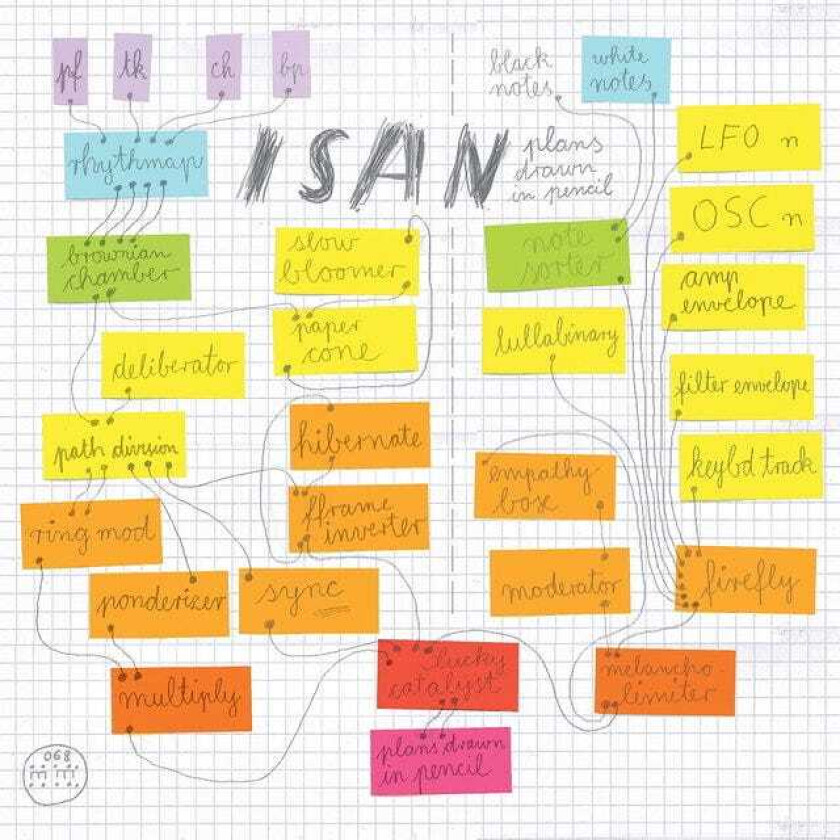 pf
tk
ch
bp
black
notes
white
notes
rhythmap
ISAN
plans
drawn
in pencil
LFO n
OSC n
brownian
chamber
slow
bloomer
note
sorter
amp
envelope
paper
cone
lullabinary
deliberator
filter envelope
path division
hibernate
keybd track
empathy
box
fframe
inverter
ring mod
ponderizer
sync
moderator
firefly
multiply
lucky
catalyst
melancho
limiter
plans drawn
in pencil
068